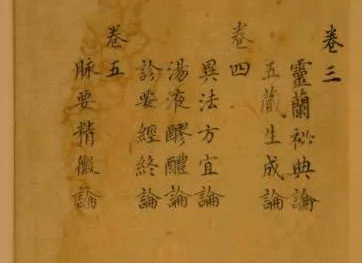 卷三
靈蘭祕典論
五藏生成論
卷四
異法方宜論
湯液醪醴論
診要經終論
卷五
脉要精微論